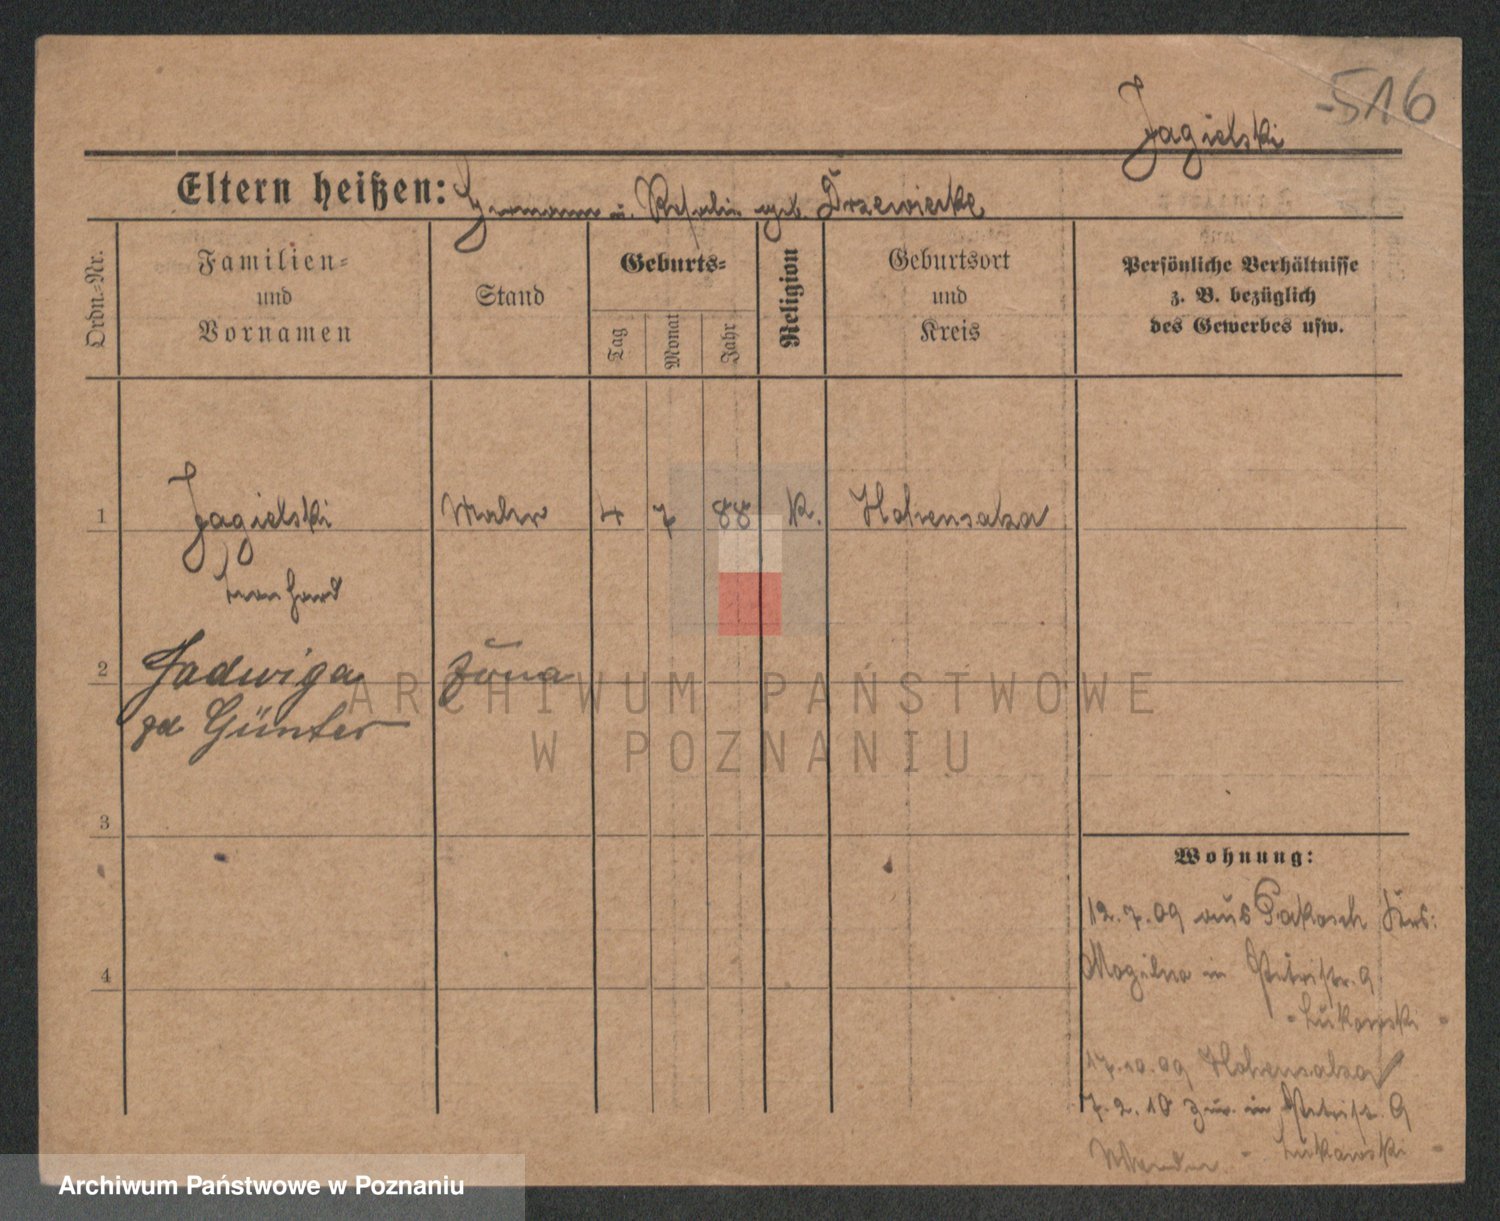 516
Jagielski
Eltern heißen: Hermann u. Rosalie geb. Drzewiecke
Ordn.-Nr.
Familien-
und
Vornamen
Stand
Geburts-
Tag
Monat
Jahr
Religion
Geburtsort
und
Kreis
Persönliche Verhältnisse
z. B. bezüglich
des Gewerbes usw.
1 Jagielski Maler 4 7 88 K. Hohensalza
Leonhard
2 Jadwiga żona
gd Günter
ARCHIWUM PAŃSTWOWE
W POZNANIU
3
Wohnung:
12.7.09 aus Pakosch Krs:
4
Mogilno in Petristr. 9
- Lukowski -
17.10.09 Hohensalza
7.2.10 zur. in Petristr. 9
- Lukowski -
Archiwum Państwowe w Poznaniu